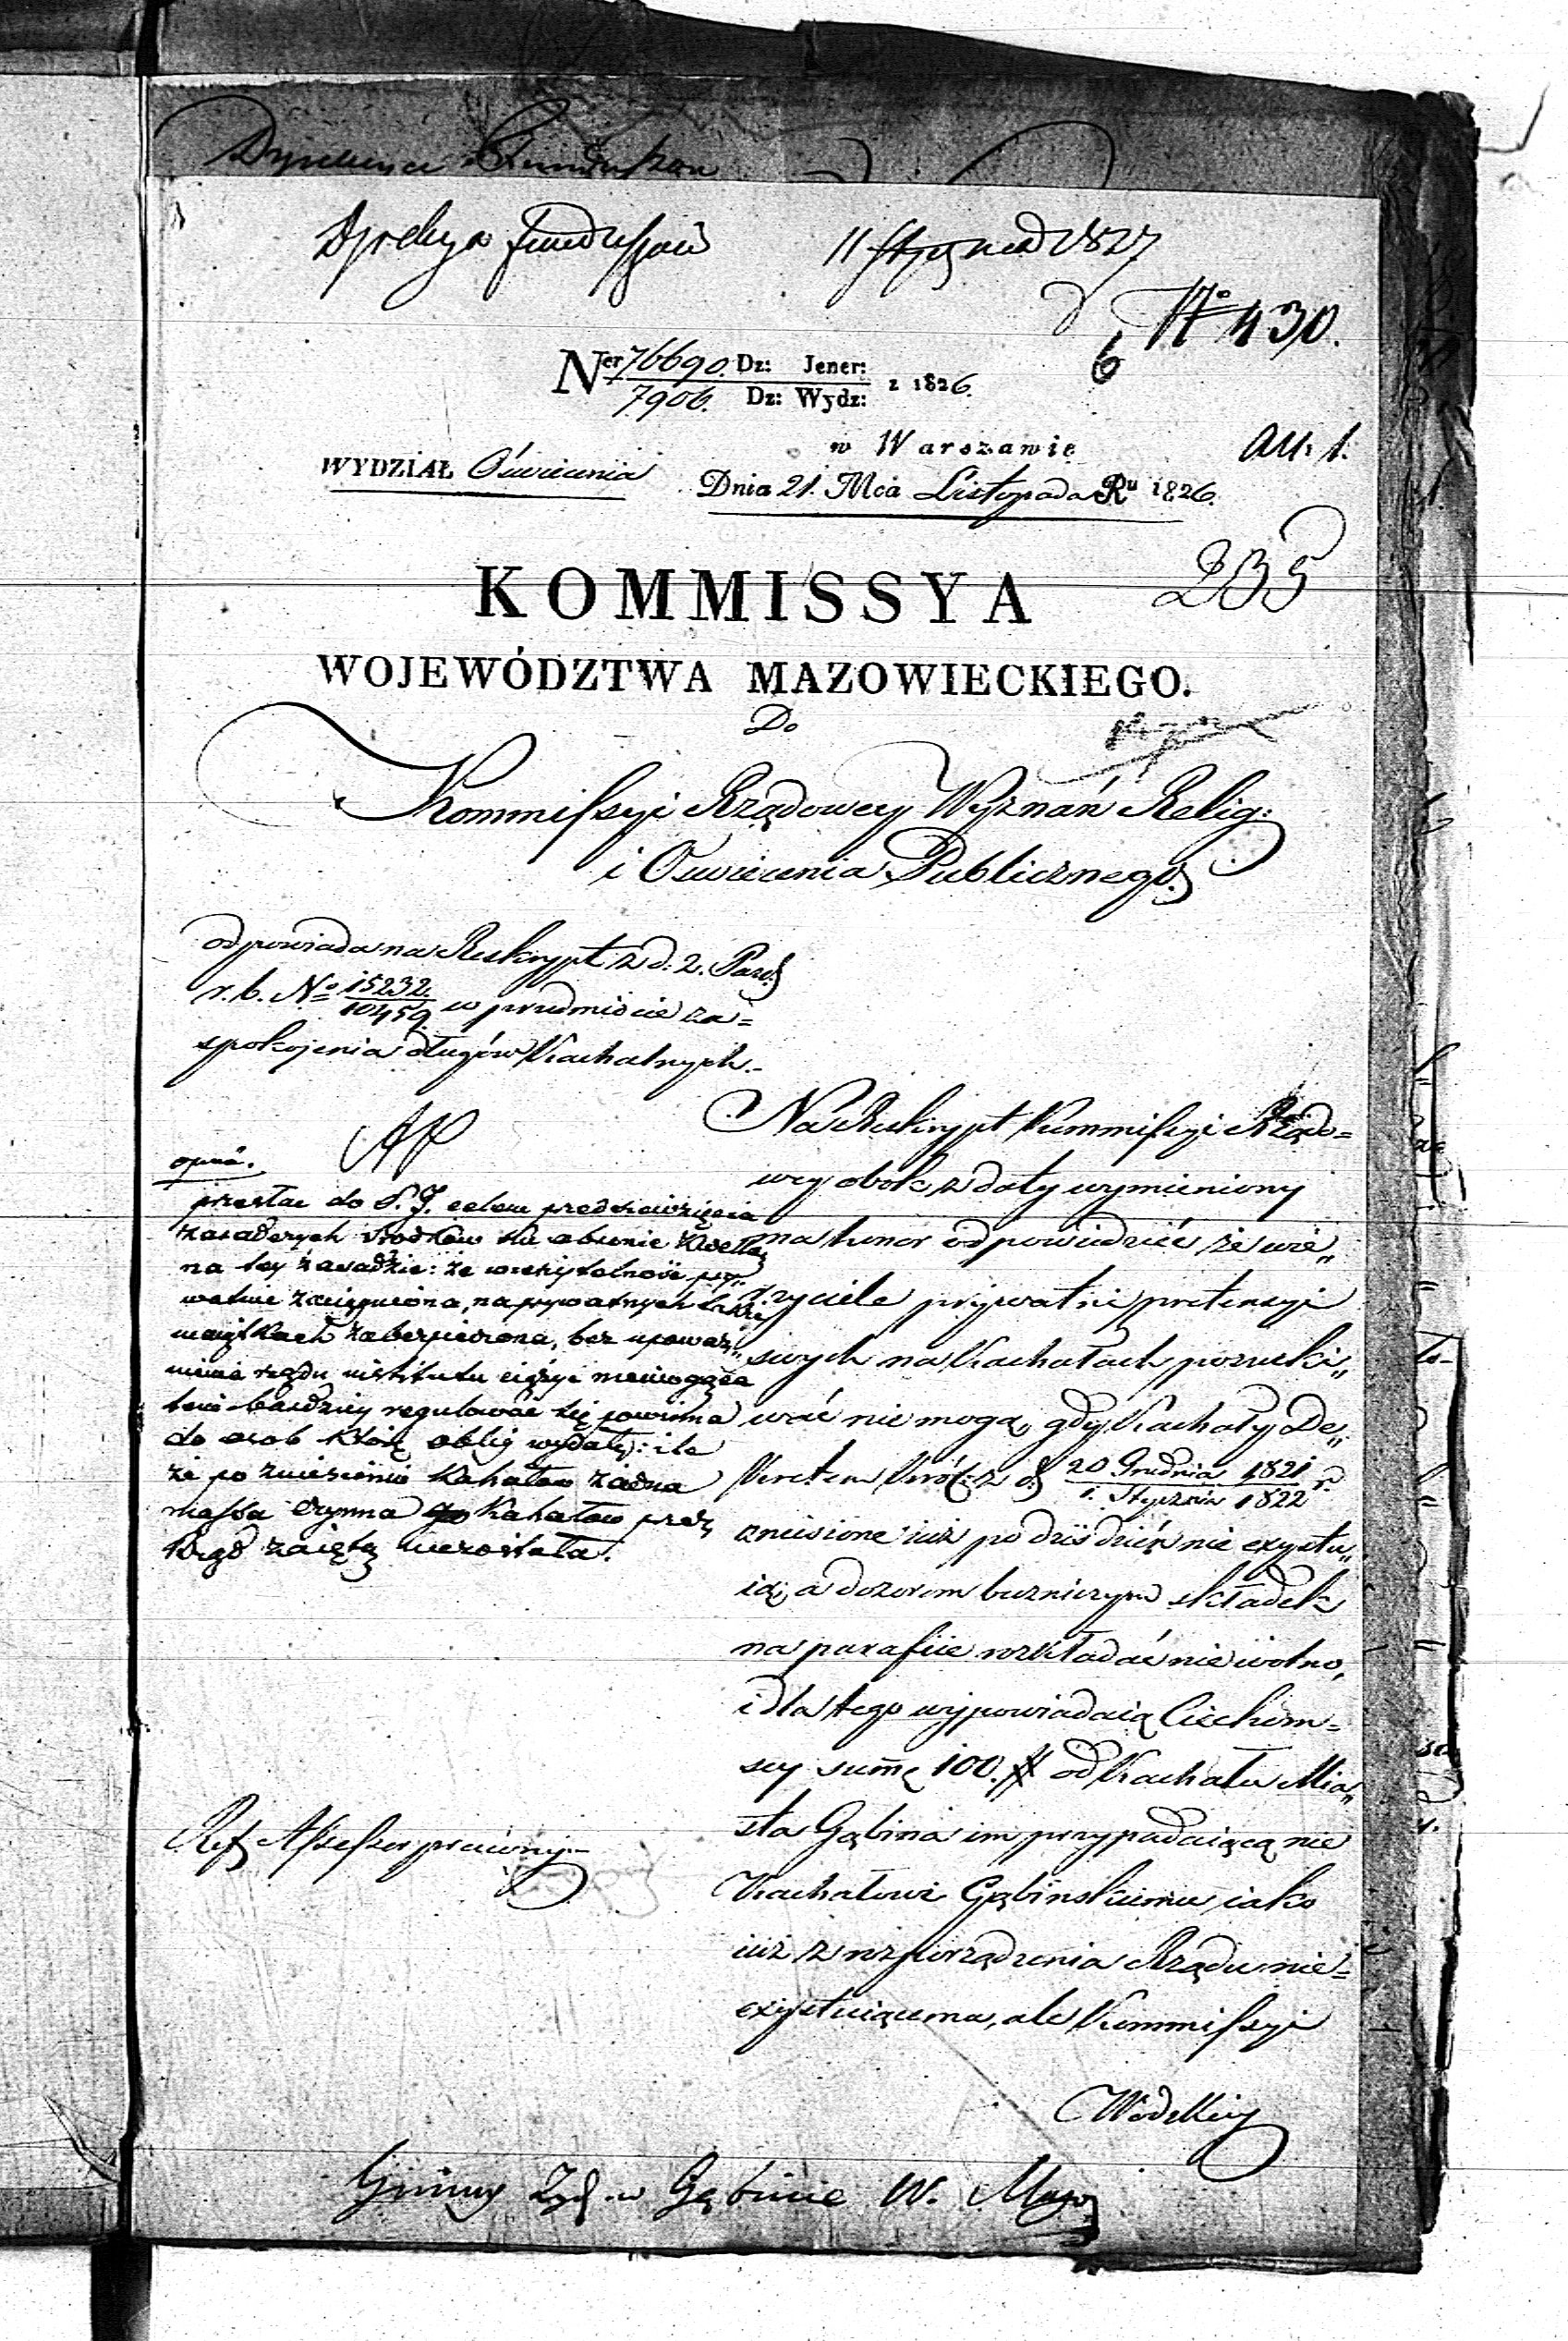 Dyrekcya Funduszów
Dyrekcya Funduszów 11 Stycznia 1827
Nº 430.
6
Ner 76690. Dz: Jener:
7906. Dz: Wydz: z 1826.
w Warszawie
WYDZIAŁ Oświecenia Dnia 21. Mca Listopada Ru 1826.
235
KOMMISSYA
WOJEWÓDZTWA MAZOWIECKIEGO.
Do
Kommissyi Rządowey Wyznań Relig:
i Oświecenia Publicznego
odpowiada na Reskrypt z d: 2. Paźd.
r. b. No 15232.
10459 w przedmiocie za=
spokojenia długów Kachalnych.-
opin.
przesłać do P. J. celem przedsięwzięcia
zaradczych środków ku obronie
na tey zasadzie: że wierzytelność pry„
watnie zaciągniona, na prywatnych
maiątkach zabezpieczona, bez upoważ„
nienia rządu institutu ciążyć niemogąca
bardziey regulować się powinna
do osób które oblig wydały: ile
że po zniesieniu Kahałow żadna
massa czynna po Kahałow przez
Rząd zaiętą niezostała.
Ref. Assessor prawny
Na Reskrypt Kommissyi Rządo=
wey obok z daty wymieniony
ma honor odpowiedzieć że wie„
rzyciele prywatni pretensyi
swych na Kachałach poszuki„
wać nie mogą, gdy Kachały De„
kretem Król: z d. 20 Grudnia 1821
1. Stycznia 1822 r.
zniesione iuż po dziś dzień nie exystu„
ią, a dozorom bużniczym składek
na parafiie rozkładać nie wolno,
i dla tego wypowiadaią Ciechom=
scy summę 100. # od Kachału Mia„
sta Gąbina im przypadaiącą nie
Kachałowi Gąbinskiemu iako
iuż z rozporządzenia Rządu nie=
exystuiącemu, ale Kommissyi
Wodzkiey
Gminy Żyd. w Gąbinie W. Mazow